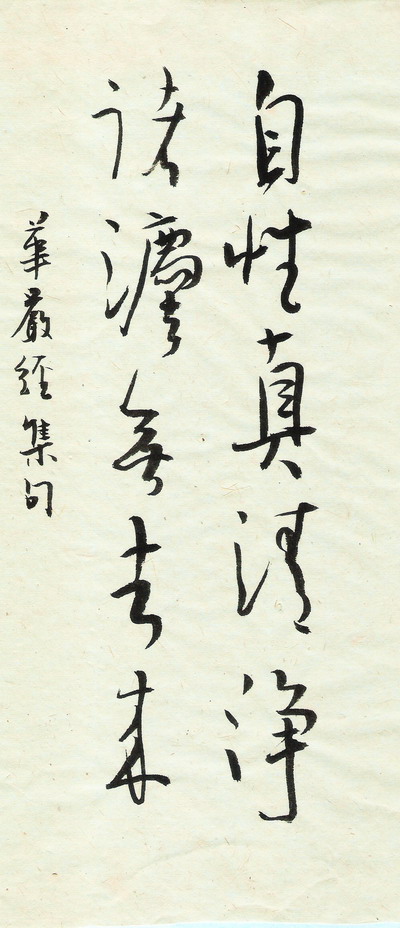 自性真清淨
諸灋無去來
華嚴經集句